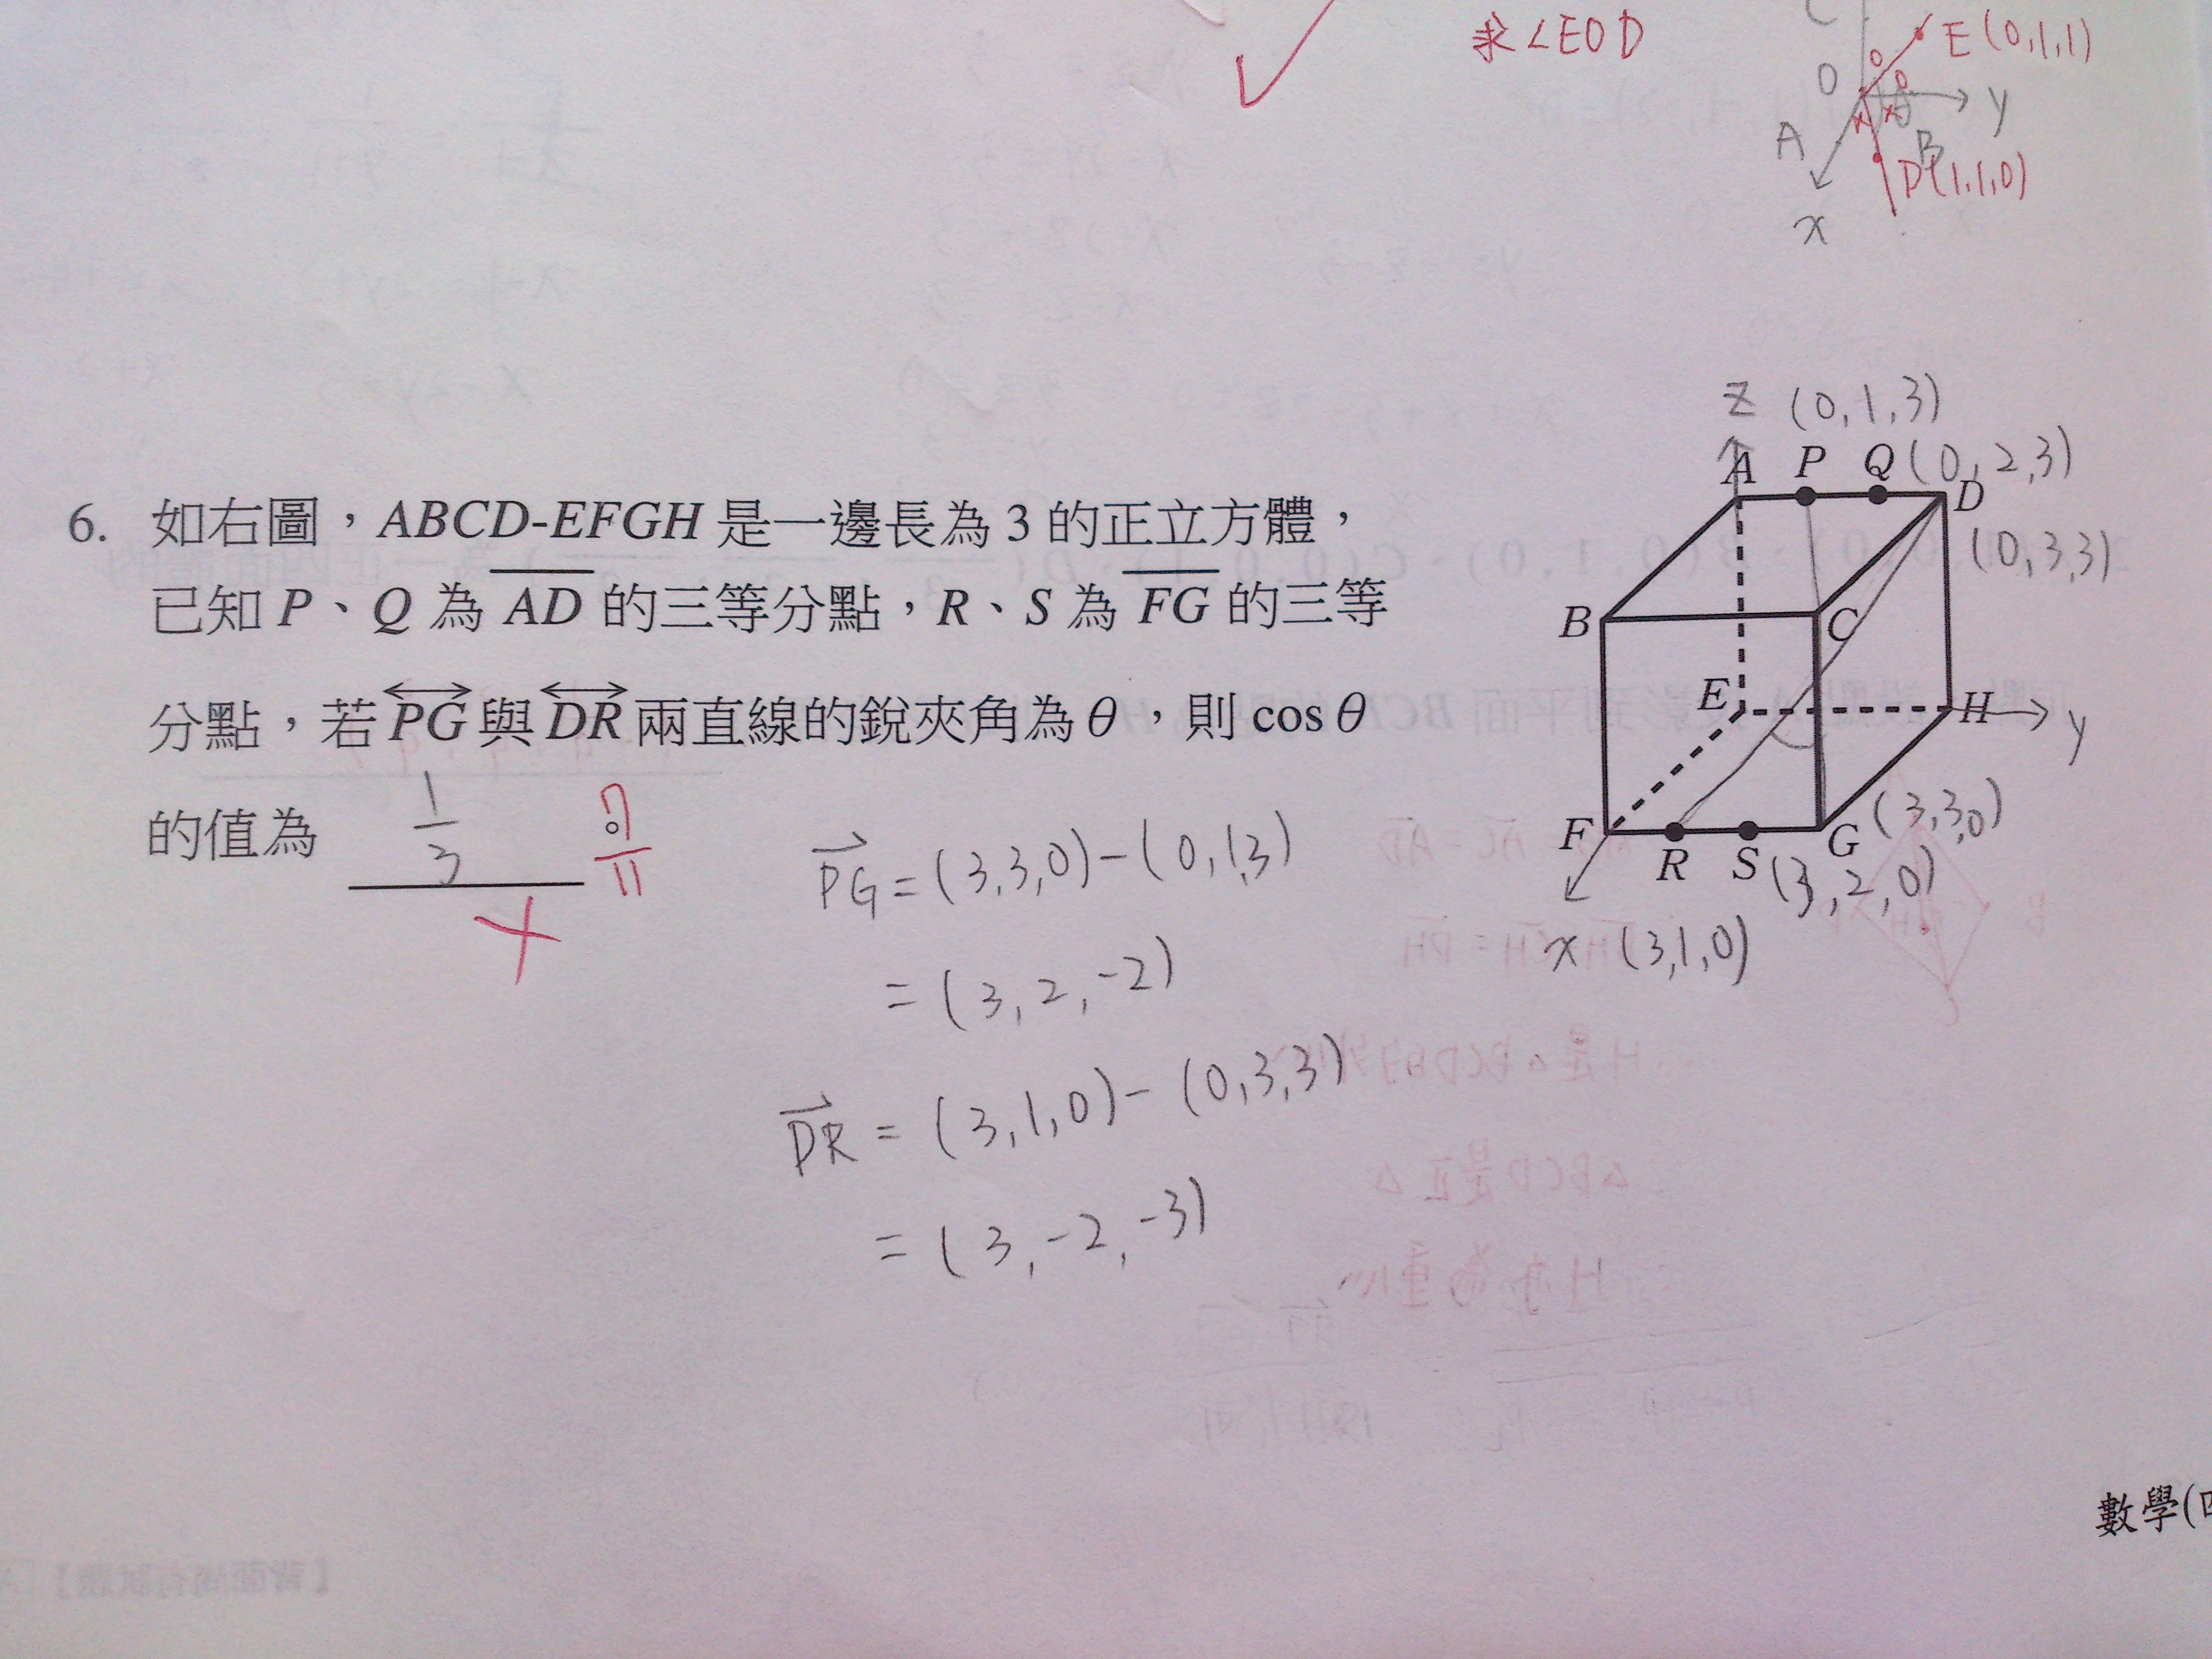 求∠EOD
C
E(0,1,1)
O
y
A
B
D(1,1,0)
x
z (0,1,3)
A P Q (0,2,3)
D
(0,3,3)
B C
E H y
F R S G (3,3,0)
(3,2,0)
x (3,1,0)
6. 如右圖，ABCD-EFGH 是一邊長為 3 的正立方體，
已知 P、Q 為 AD 的三等分點，R、S 為 FG 的三等
分點，若 PG 與 DR 兩直線的銳夾角為 θ，則 cos θ
的值為 1/3
PG = (3,3,0) - (0,1,3)
= (3,2,-2)
DR = (3,1,0) - (0,3,3)
= (3,-2,-3)
數學(